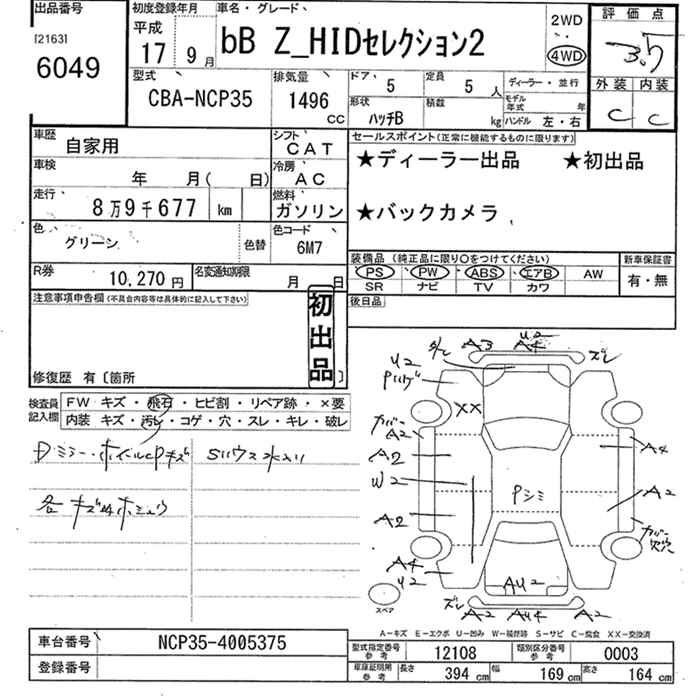 出品番号
[2163]
6049
初度登録年月
平成
17 9月
車名・グレード
bB Z_HIDセレクション2
2WD
4WD
評価点
3.5
外装 内装
C C
型式
CBA-NCP35
排気量
1496
CC
ドア
5
定員
5 人
形状
ハッチB
積載
kg
ディーラー・並行
モデル年式 年
ハンドル 左・右
車歴
自家用
シフト
CAT
車検
年 月( 日)
冷房
AC
走行
8万9千677 km
燃料
ガソリン
色
グリーン
色替
色コード
6M7
R券
10,270円
名変通知期限
月 日
セールスポイント(正常に機能するものに限ります)
★ディーラー出品 ★初出品
★バックカメラ
装備品(純正品に限り○をつけてください)
PS PW ABS エアB AW
SR ナビ TV カワ
新車保証書
有・無
後日品
注意事項申告欄(不具合内容等は具体的に記入して下さい)
初出品
修復歴 有〔箇所 〕
検査員記入欄
FW キズ・飛石・ヒビ割・リペア跡・×要
内装 キズ・汚レ・コゲ・穴・スレ・キレ・破レ
U2
A3 A4 ズレ
U2
XX
カバー
A2
A2
W2
A2
A4
U2
A4
A2
カバー
Pシミ
AU2
スペア
ズレ
A2 AU4 A2
A-キズ E-エクボ U-凹み W-補修跡 S-サビ C-腐食 XX-交換済
車台番号
NCP35-4005375
登録番号
型式指定番号
参考
12108
類別区分番号
参考
0003
車庫証明用
参考
長さ
394 cm
幅
169 cm
高さ
164 cm